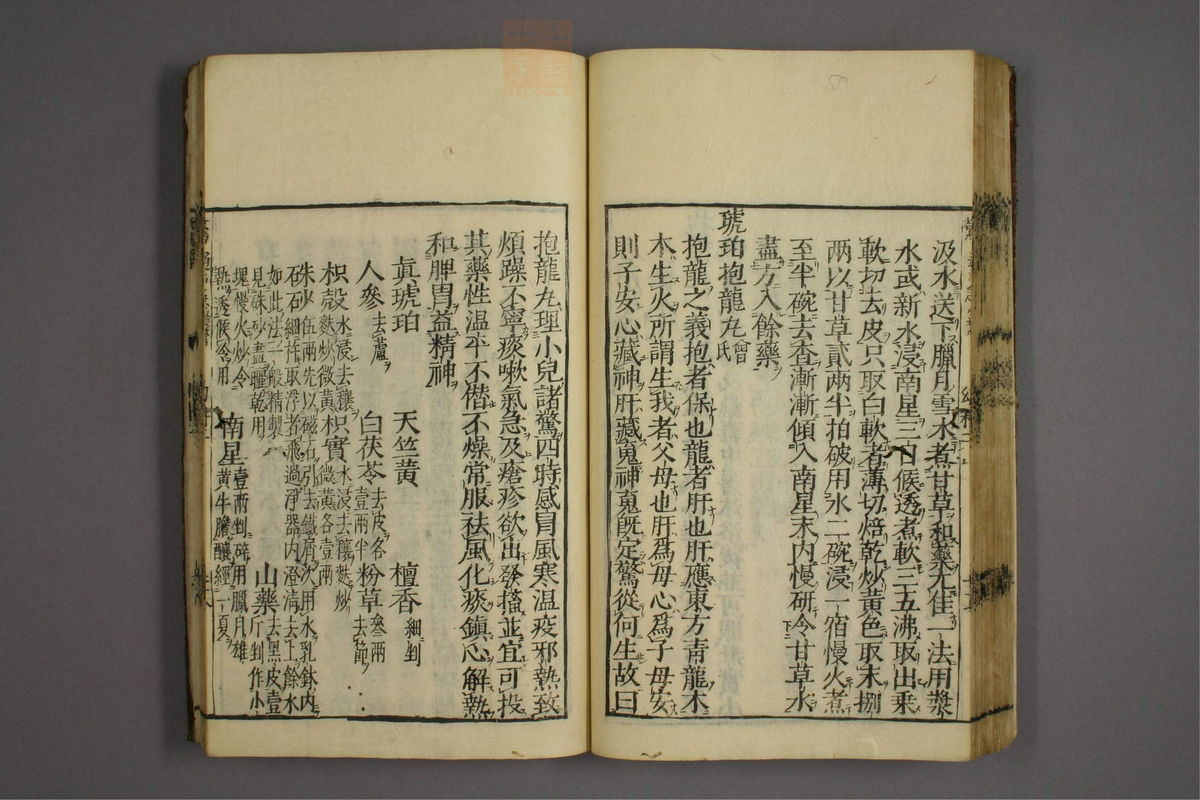 汲水送下臘月雪水煮甘草和藥尤佳一法用漿
水或新水浸南星三日候透煮軟三五沸取出乗
軟切去皮只取白軟者薄切焙乾炒黄色取末捌
兩以甘草貳兩半拍破用水二碗浸一宿慢火煮
至半碗去查漸漸傾入南星末内慢研令甘草水
盡方入餘藥
琥珀抱龍丸 曾氏
抱龍之義抱者保也龍者肝也肝應東方青龍木
木生火所謂生我者父母也肝爲母心爲子母安
則子安心藏神肝藏魂神魂旣定驚從何生故曰
抱龍丸理小兒諸驚四時感冒風寒温疫邪熱致
煩躁不寧痰嗽氣急及瘡疹欲出發搐並宜可投
其藥性温平不僭不燥常服祛風化痰鎮心解熱
和脾胃益精神
眞琥珀 天竺黄 檀香 細剉
人參 去蘆 白茯苓 去皮各壹兩半 粉草 叄兩去節
枳殼 水浸去穰麩炒微黄 枳實 水浸去穰麩炒微黄各壹兩
硃砂 伍兩先以磁石引去鐵屑次用水乳鉢内
石細杵取浮者飛過淨器内澄清去上餘水
如此法一般精製
見硃砂盡曬乾用 山藥 去黒皮壹斤剉作小
塊慢火炒令
熱透候冷用 南星 壹兩剉碎用臘月雄黄牛膽釀經一夏